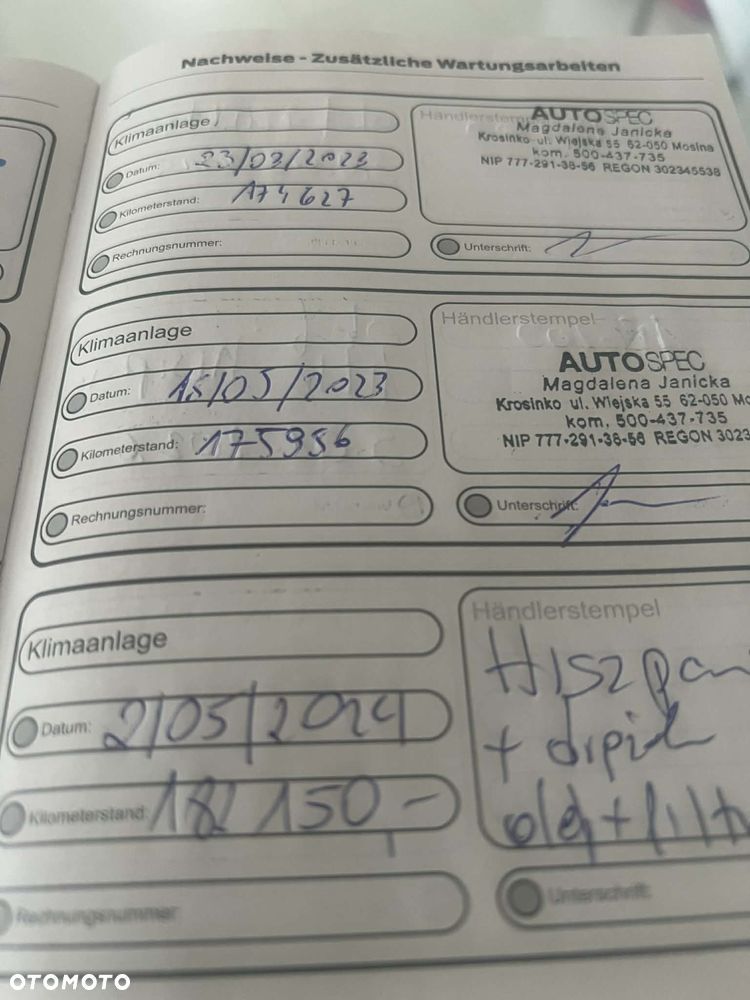 Nachweise - Zusätzliche Wartungsarbeiten
Klimaanlage
Datum: 23/03/2023
Kilometerstand: 174627
Rechnungsnummer:
Händlerstem
AUTOSPEC
Magdalena Janicka
Krosinko ul. Wiejska 55 62-050 Mosina
kom. 500-437-735
NIP 777-291-38-56 REGON 302345538
Unterschrift:
Klimaanlage
Datum: 15/05/2023
Kilometerstand: 175956
Rechnungsnummer:
Händlerstempel
AUTOSPEC
Magdalena Janicka
Krosinko ul. Wiejska 55 62-050 Mo
kom. 500-437-735
NIP 777-291-38-56 REGON 3023
Unterschrift:
Klimaanlage
Datum: 2/05/2024
Kilometerstand: 182 150 -
Rechnungsnummer
Händlerstempel
Hiszpan
+
olej + filtr
Unterschrift:
OTOMOTO